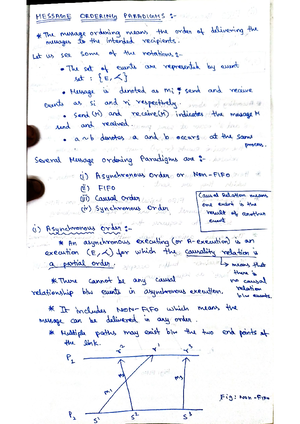 MESSAGE ORDERING PARADIGMS :-
* The message ordering means the order of delivering the
messages to the intended recipients.
Let us see some of the notations:-
• The set of events are represented by event
set : {E, ≺}
• Message is denoted as mi; send and receive
events as si and ri respectively.
• Send(M) and receive(M) indicates the message M
send and received
• a ~ b denotes a and b occurs at the same
process.
Several Message Ordering Paradigms are :-
(i) Asynchronous Order or Non-FIFO
(ii) FIFO
(iii) Causal Order
(iv) Synchronous Order
Causal Relation means
one event is the
result of another
event
(i) Asynchronous Order :-
* An asynchronous executing (or A-execution) is an
execution (E, ≺) for which the causality relation is
a partial order.
↳ means that
there is
no causal
relation
b/w events.
* There cannot be any causal
relationship b/w events in asynchronous execution.
* It includes NON-FIFO which means the
message can be delivered in any order.
* Multiple paths may exist b/w the two end points of
the link.
r² r¹ r³
P2
m1 m2 m3
P1
s¹ s² s³
Fig: Non-Fifo